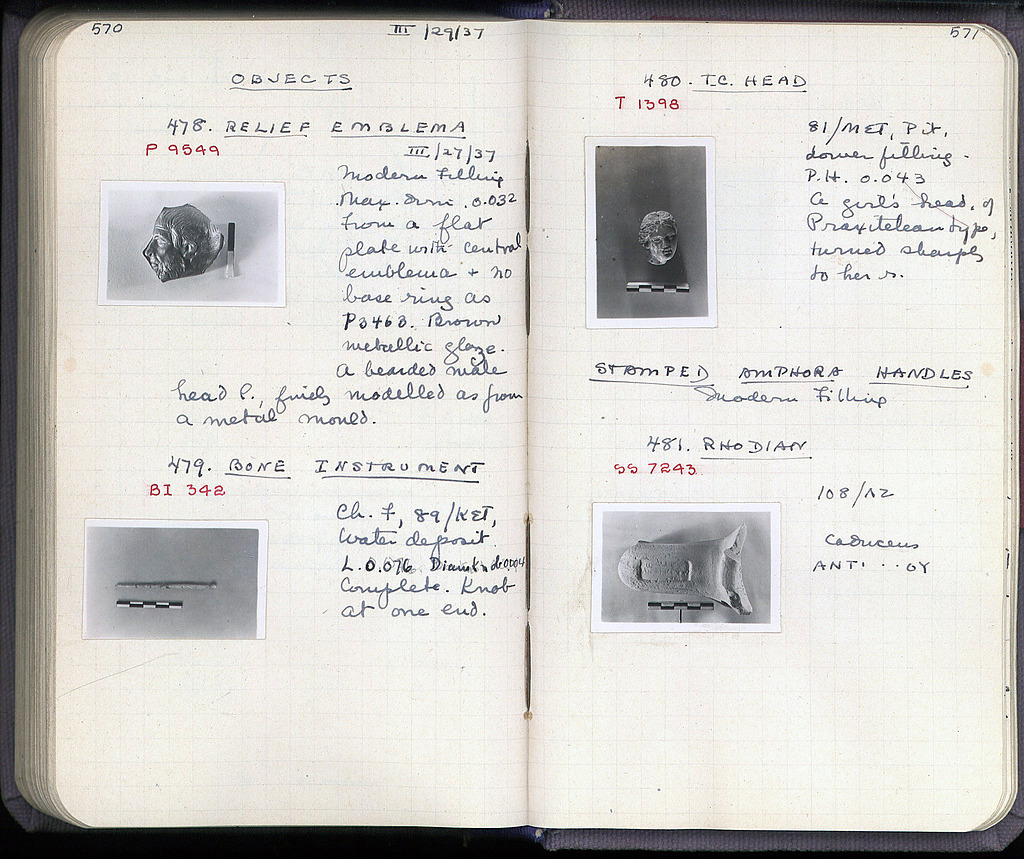 570
III /29/37
OBJECTS
478. RELIEF EMBLEMA
P 9549
III /27/37
Modern Filling
Max. dim. 0.032
From a flat
plate with central
emblema + no
base ring as
P3463. Brown
metallic glaze.
A bearded male
head l., finely modelled as from
a metal mould.
479. BONE INSTRUMENT
BI 342
Ch. F, 89/KET,
Water deposit
L. 0.076 0.004
Complete. Knob
at one end.
571
480. T.C. HEAD
T 1398
81/MET, Pit,
Lower filling.
P.H. 0.043
A girl's head, of
Praxitelean type,
turned sharply
to her r.
STAMPED AMPHORA HANDLES
Modern Filling
481. RHODIAN
SS 7243
108/ΛΖ
Caduceus
ANTI · · OY